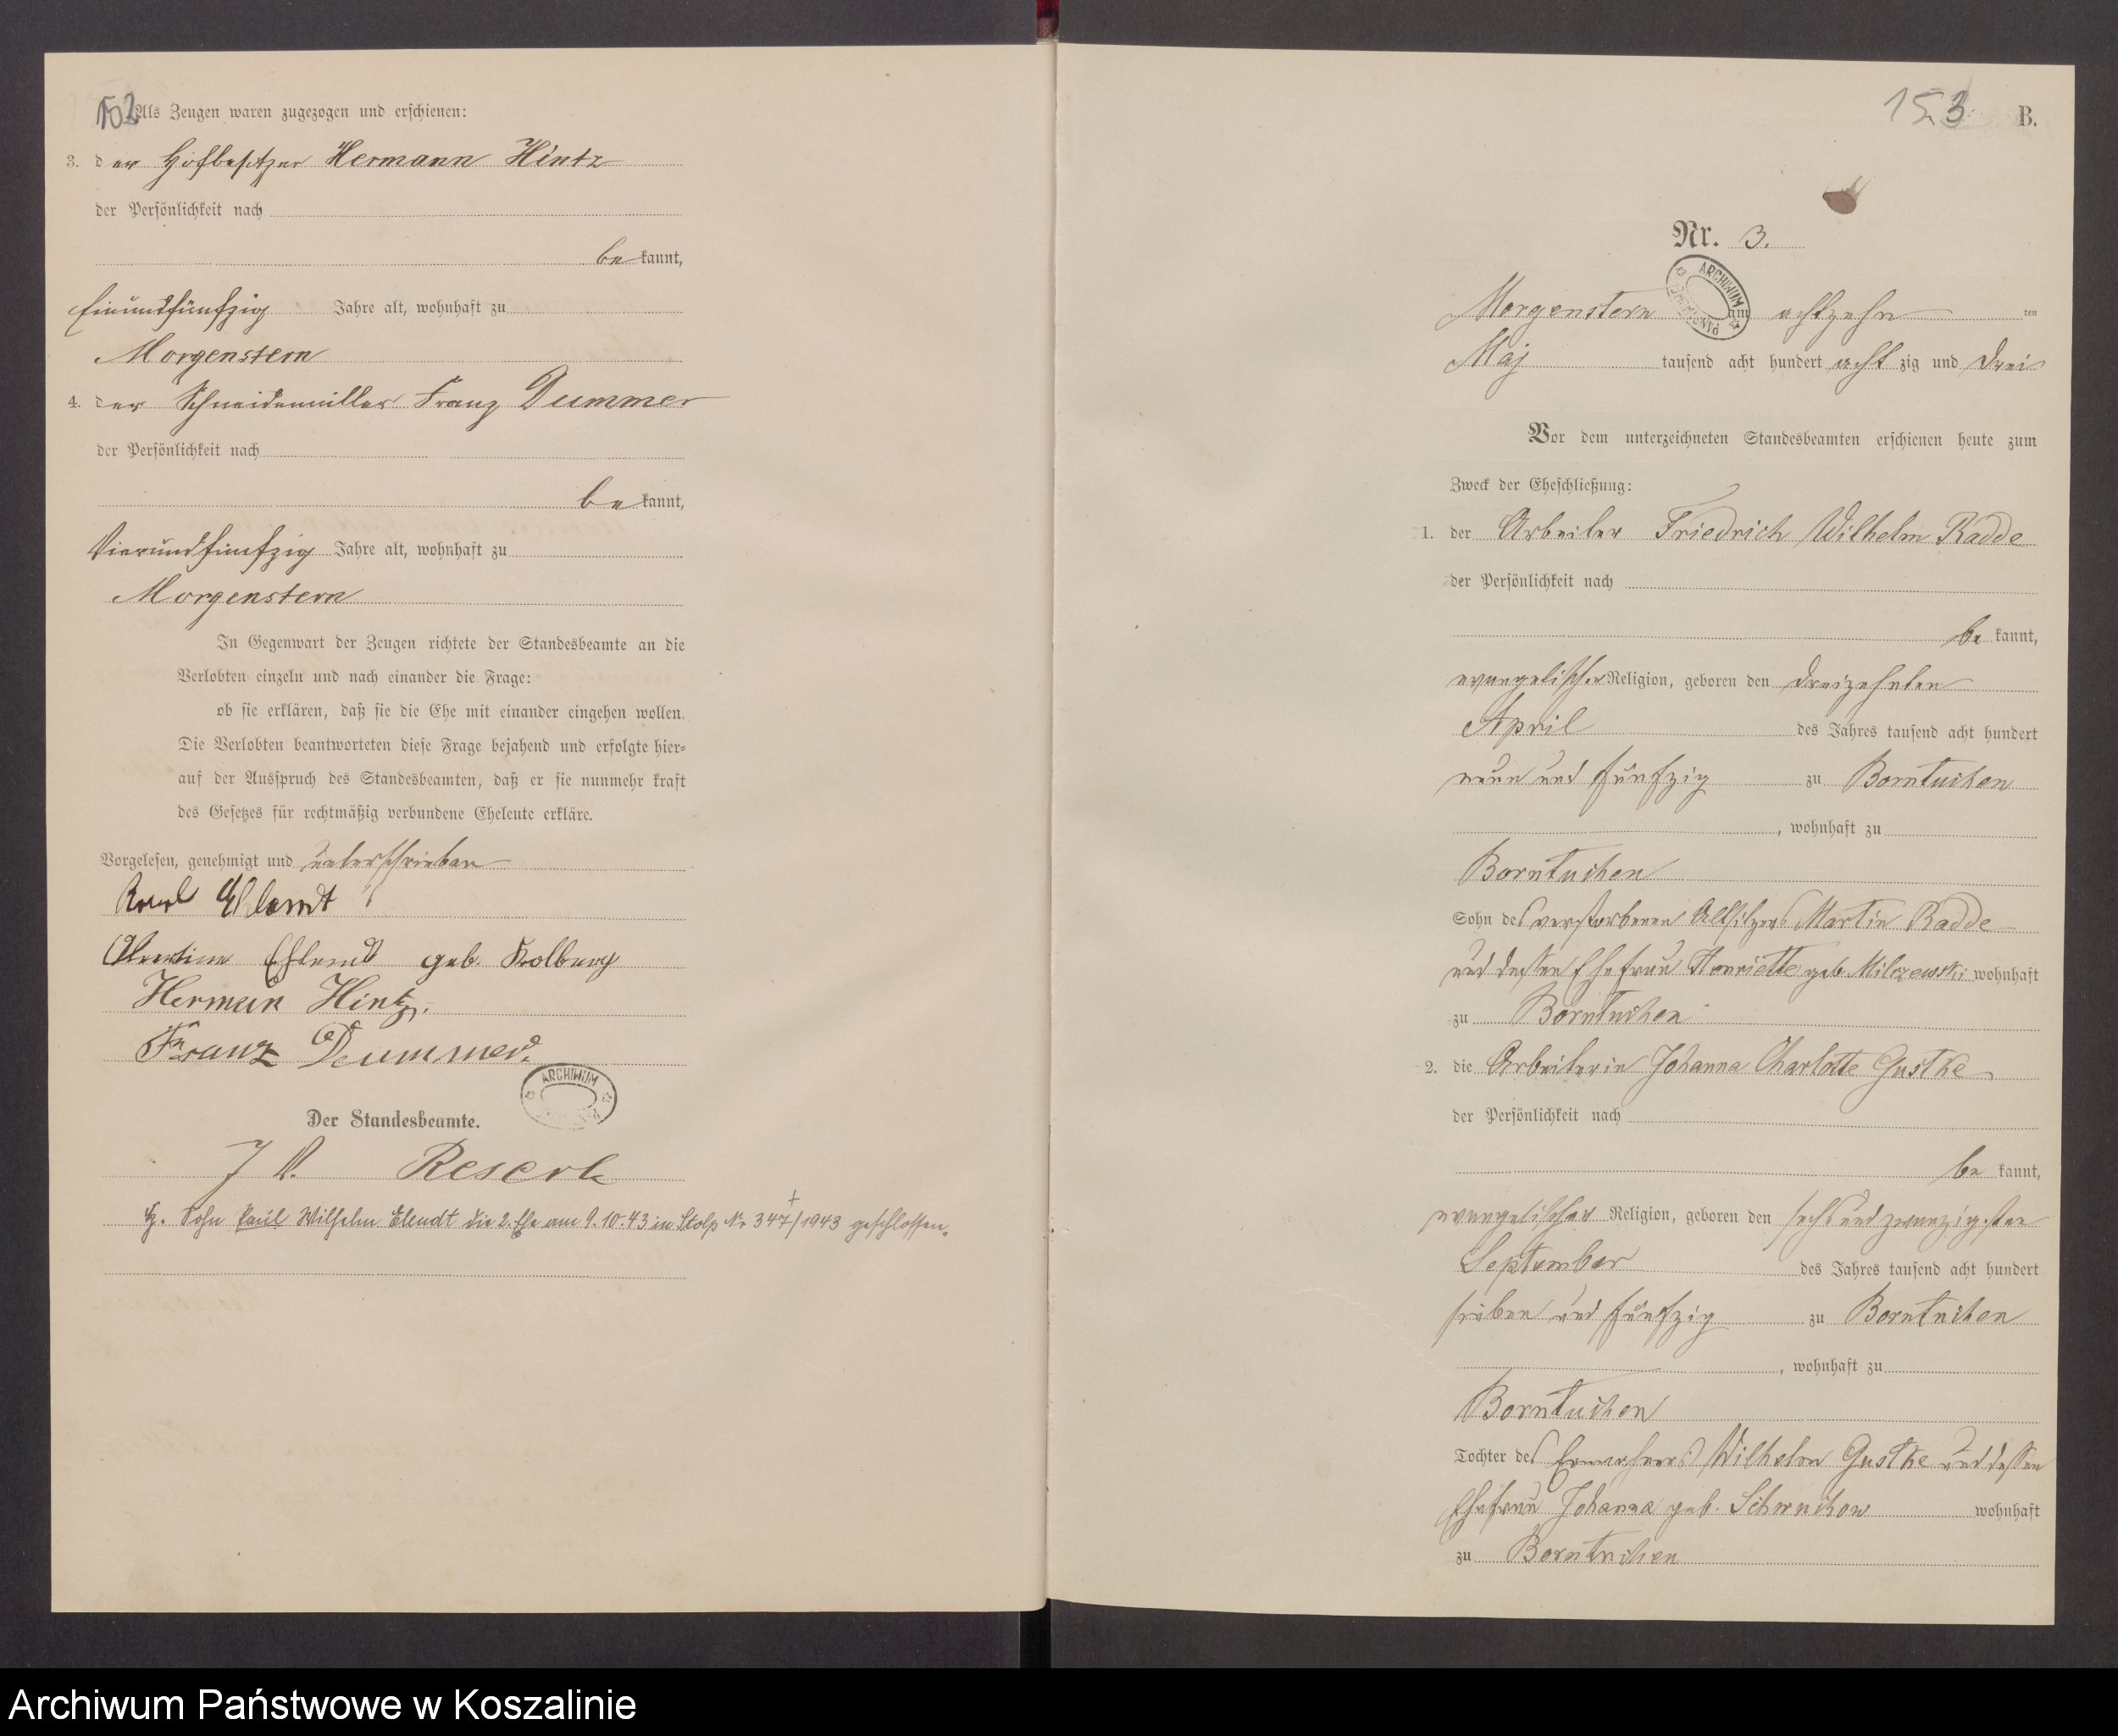 152
Als Zeugen waren zugezogen und erschienen:
3. der Hofbesitzer Hermann Hintz
der Persönlichkeit nach
be kannt,
einundfünfzig Jahre alt, wohnhaft zu
Morgenstern
4. der Schneidemüller Franz Dummer
der Persönlichkeit nach
be kannt,
vierundfünfzig Jahre alt, wohnhaft zu
Morgenstern
In Gegenwart der Zeugen richtete der Standesbeamte an die
Verlobten einzeln und nach einander die Frage:
ob sie erklären, daß sie die Ehe mit einander eingehen wollen.
Die Verlobten beantworteten diese Frage bejahend und erfolgte hier=
auf der Ausspruch des Standesbeamten, daß er sie nunmehr kraft
des Gesetzes für rechtmäßig verbundene Eheleute erkläre.
Vorgelesen, genehmigt und unterschrieben
Karl Ehlendt
Ehlendt geb. Kolberg
Herman Hintz.
Franz Dummer.
ARCHIWUM
Der Standesbeamte.
J V.
H. Sohn Paul Wilhelm Elendt die 2. Ehe am 9.10.43 in Stolp Nr 347/1943 geschlossen.
153 B.
Nr. 3.
ARCHIWUM
Morgenstern am achtzehn ten
Maj tausend acht hundert acht zig und drei
Vor dem unterzeichneten Standesbeamten erschienen heute zum
Zweck der Eheschließung:
1. der Arbeiter Friedrich Wilhelm Radde
der Persönlichkeit nach
be kannt,
evangelischer Religion, geboren den dreizehnten
April des Jahres tausend acht hundert
neun und fünfzig zu Borntuchen
, wohnhaft zu
Borntuchen
Sohn des verstorbenen Altsitzers Martin Radde
und dessen Ehefrau Henriette geb. Milczewski wohnhaft
zu Borntuchen
2. die Arbeiterin Johanna Charlotte Gustke
der Persönlichkeit nach
be kannt,
evangelischer Religion, geboren den sechsundzwanzigsten
September des Jahres tausend acht hundert
sieben und fünfzig zu Borntuchen
, wohnhaft zu
Borntuchen
Tochter des Einwohners Wilhelm Gustke und dessen
Ehefrau Johanna geb. Schwuchow wohnhaft
zu Borntuchen
Archiwum Państwowe w Koszalinie